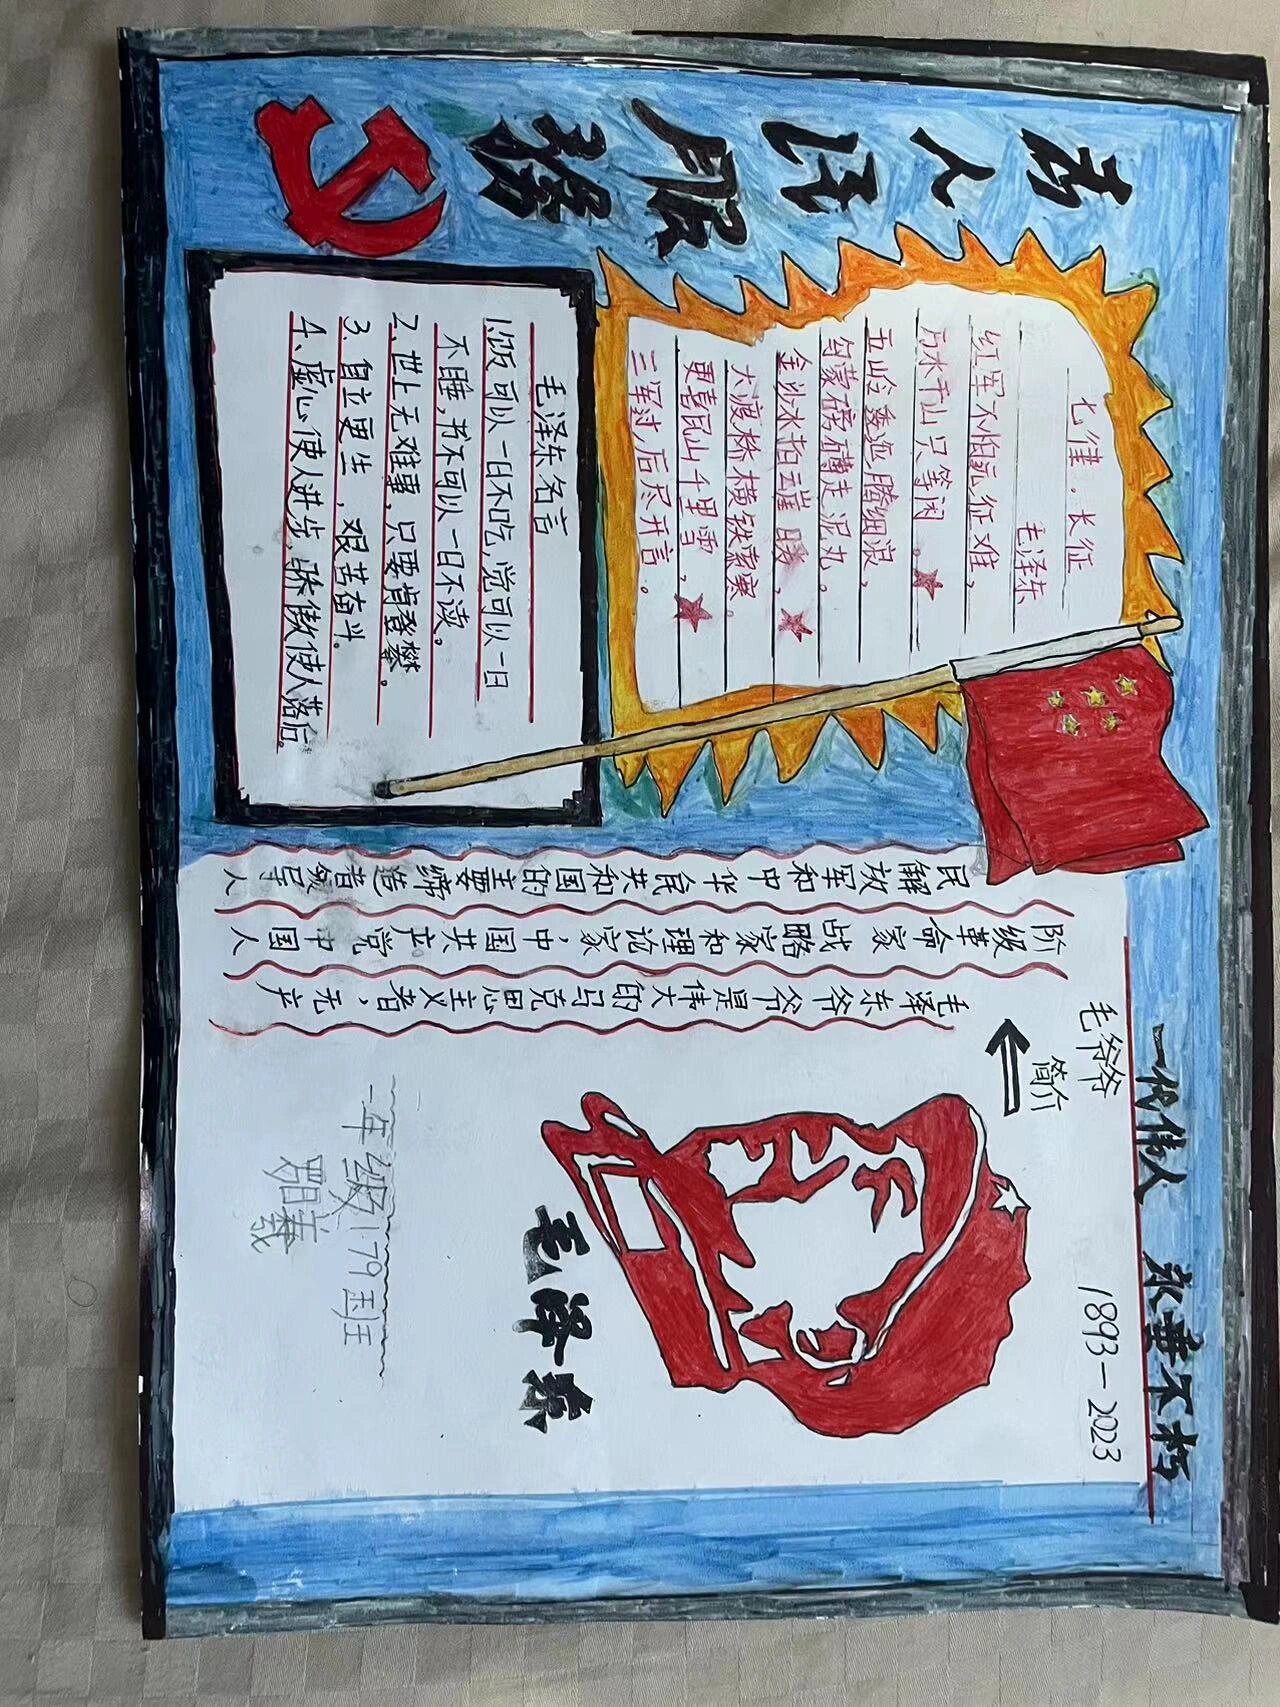 一代伟人 永垂不朽
为人民服务
七律.长征
毛泽东
红军不怕远征难,
万水千山只等闲。
五岭逶迤腾细浪,
乌蒙磅礴走泥丸。
金沙水拍云崖暖,
大渡桥横铁索寒。
更喜岷山千里雪,
三军过后尽开言。
毛泽东名言
1.饭可以一日不吃,觉可以一日
不睡,书不可以一日不读。
2.世上无难事,只要肯登攀。
3.自立更生,艰苦奋斗。
4、虚心使人进步,骄傲使人落后。
毛爷爷
简介
1893—2023
毛泽东爷爷是伟大的马克思主义者,无产
阶级革命家战略家和理论家,中国共产党。中国人
民解放军和中华人民共和国的主要缔造者领导人
毛泽东
一年级179班